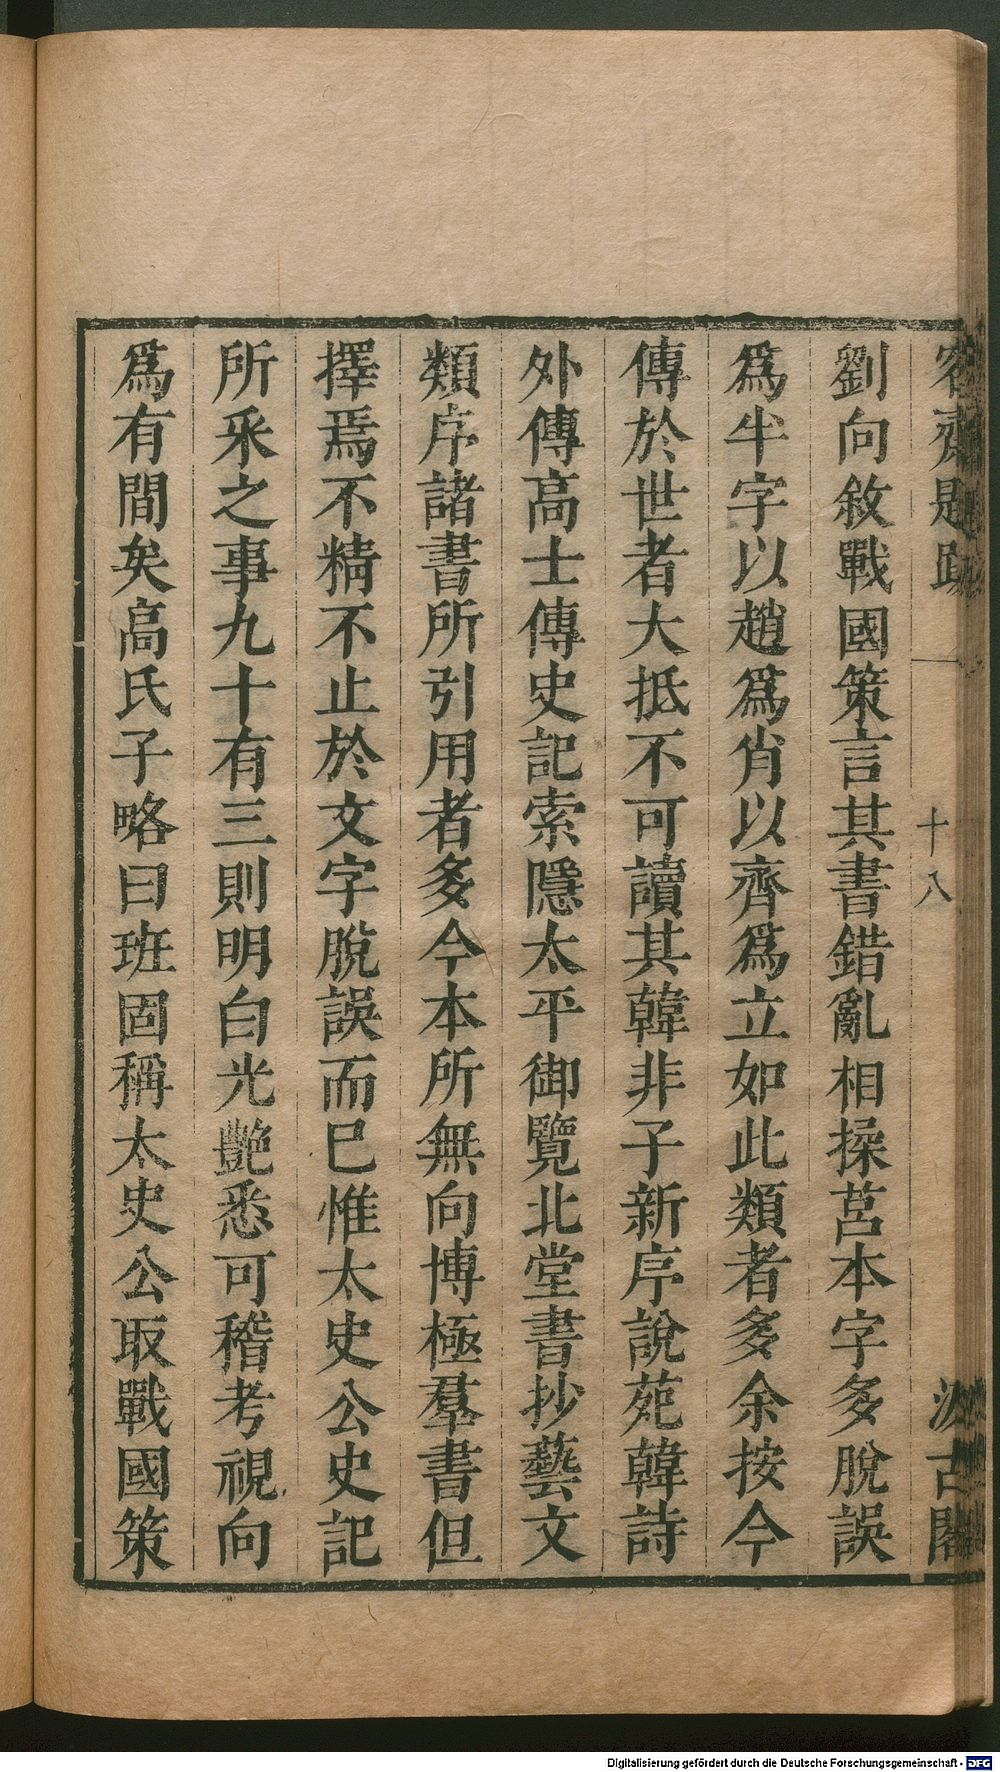 容齋題跋
十八
汲古閣
劉向敘戰國策言其書錯亂相揉莒本字多脫誤
為半字以趙為肖以齊為立如此類者多余按今
傳於世者大抵不可讀其韓非子新序說苑韓詩
外傳高士傳史記索隱太平御覽北堂書抄藝文
類序諸書所引用者多今本所無向博極羣書但
擇焉不精不止於文字脫誤而已惟太史公史記
所釆之事九十有三則明白光艷悉可稽考視向
為有間矣高氏子略曰班固稱太史公取戰國策
Digitalisierung gefördert durch die Deutsche Forschungsgemeinschaft - DFG